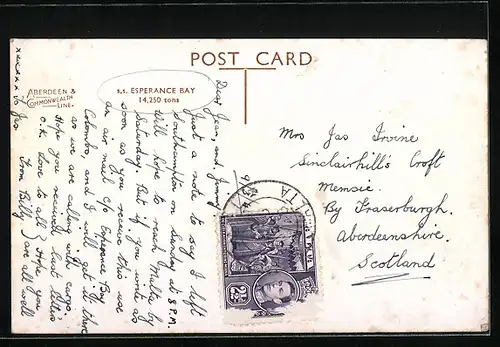 POST CARD
ABERDEEN &
COMMONWEALTH
LINE
s.s. ESPERANCE BAY
14,250 tons
Dear Jean, and Jimmy
Just a note to say I left
Southampton on Sunday at 8 P.M.
Will hope to reach Malta by
Saturday. But if you write as
soon as you receive this use
an air mail c/o Esperance Bay
Colombo, and I will get it there
as we are calling with cargo.
Hope you received last letter
o.k. Love to all } Hope you
From Billy } are all well
Mrs Jas Irvine
Sinclairhill's Croft
Memsie.
By Fraserburgh.
Aberdeenshire.
Scotland
MALTA
2½